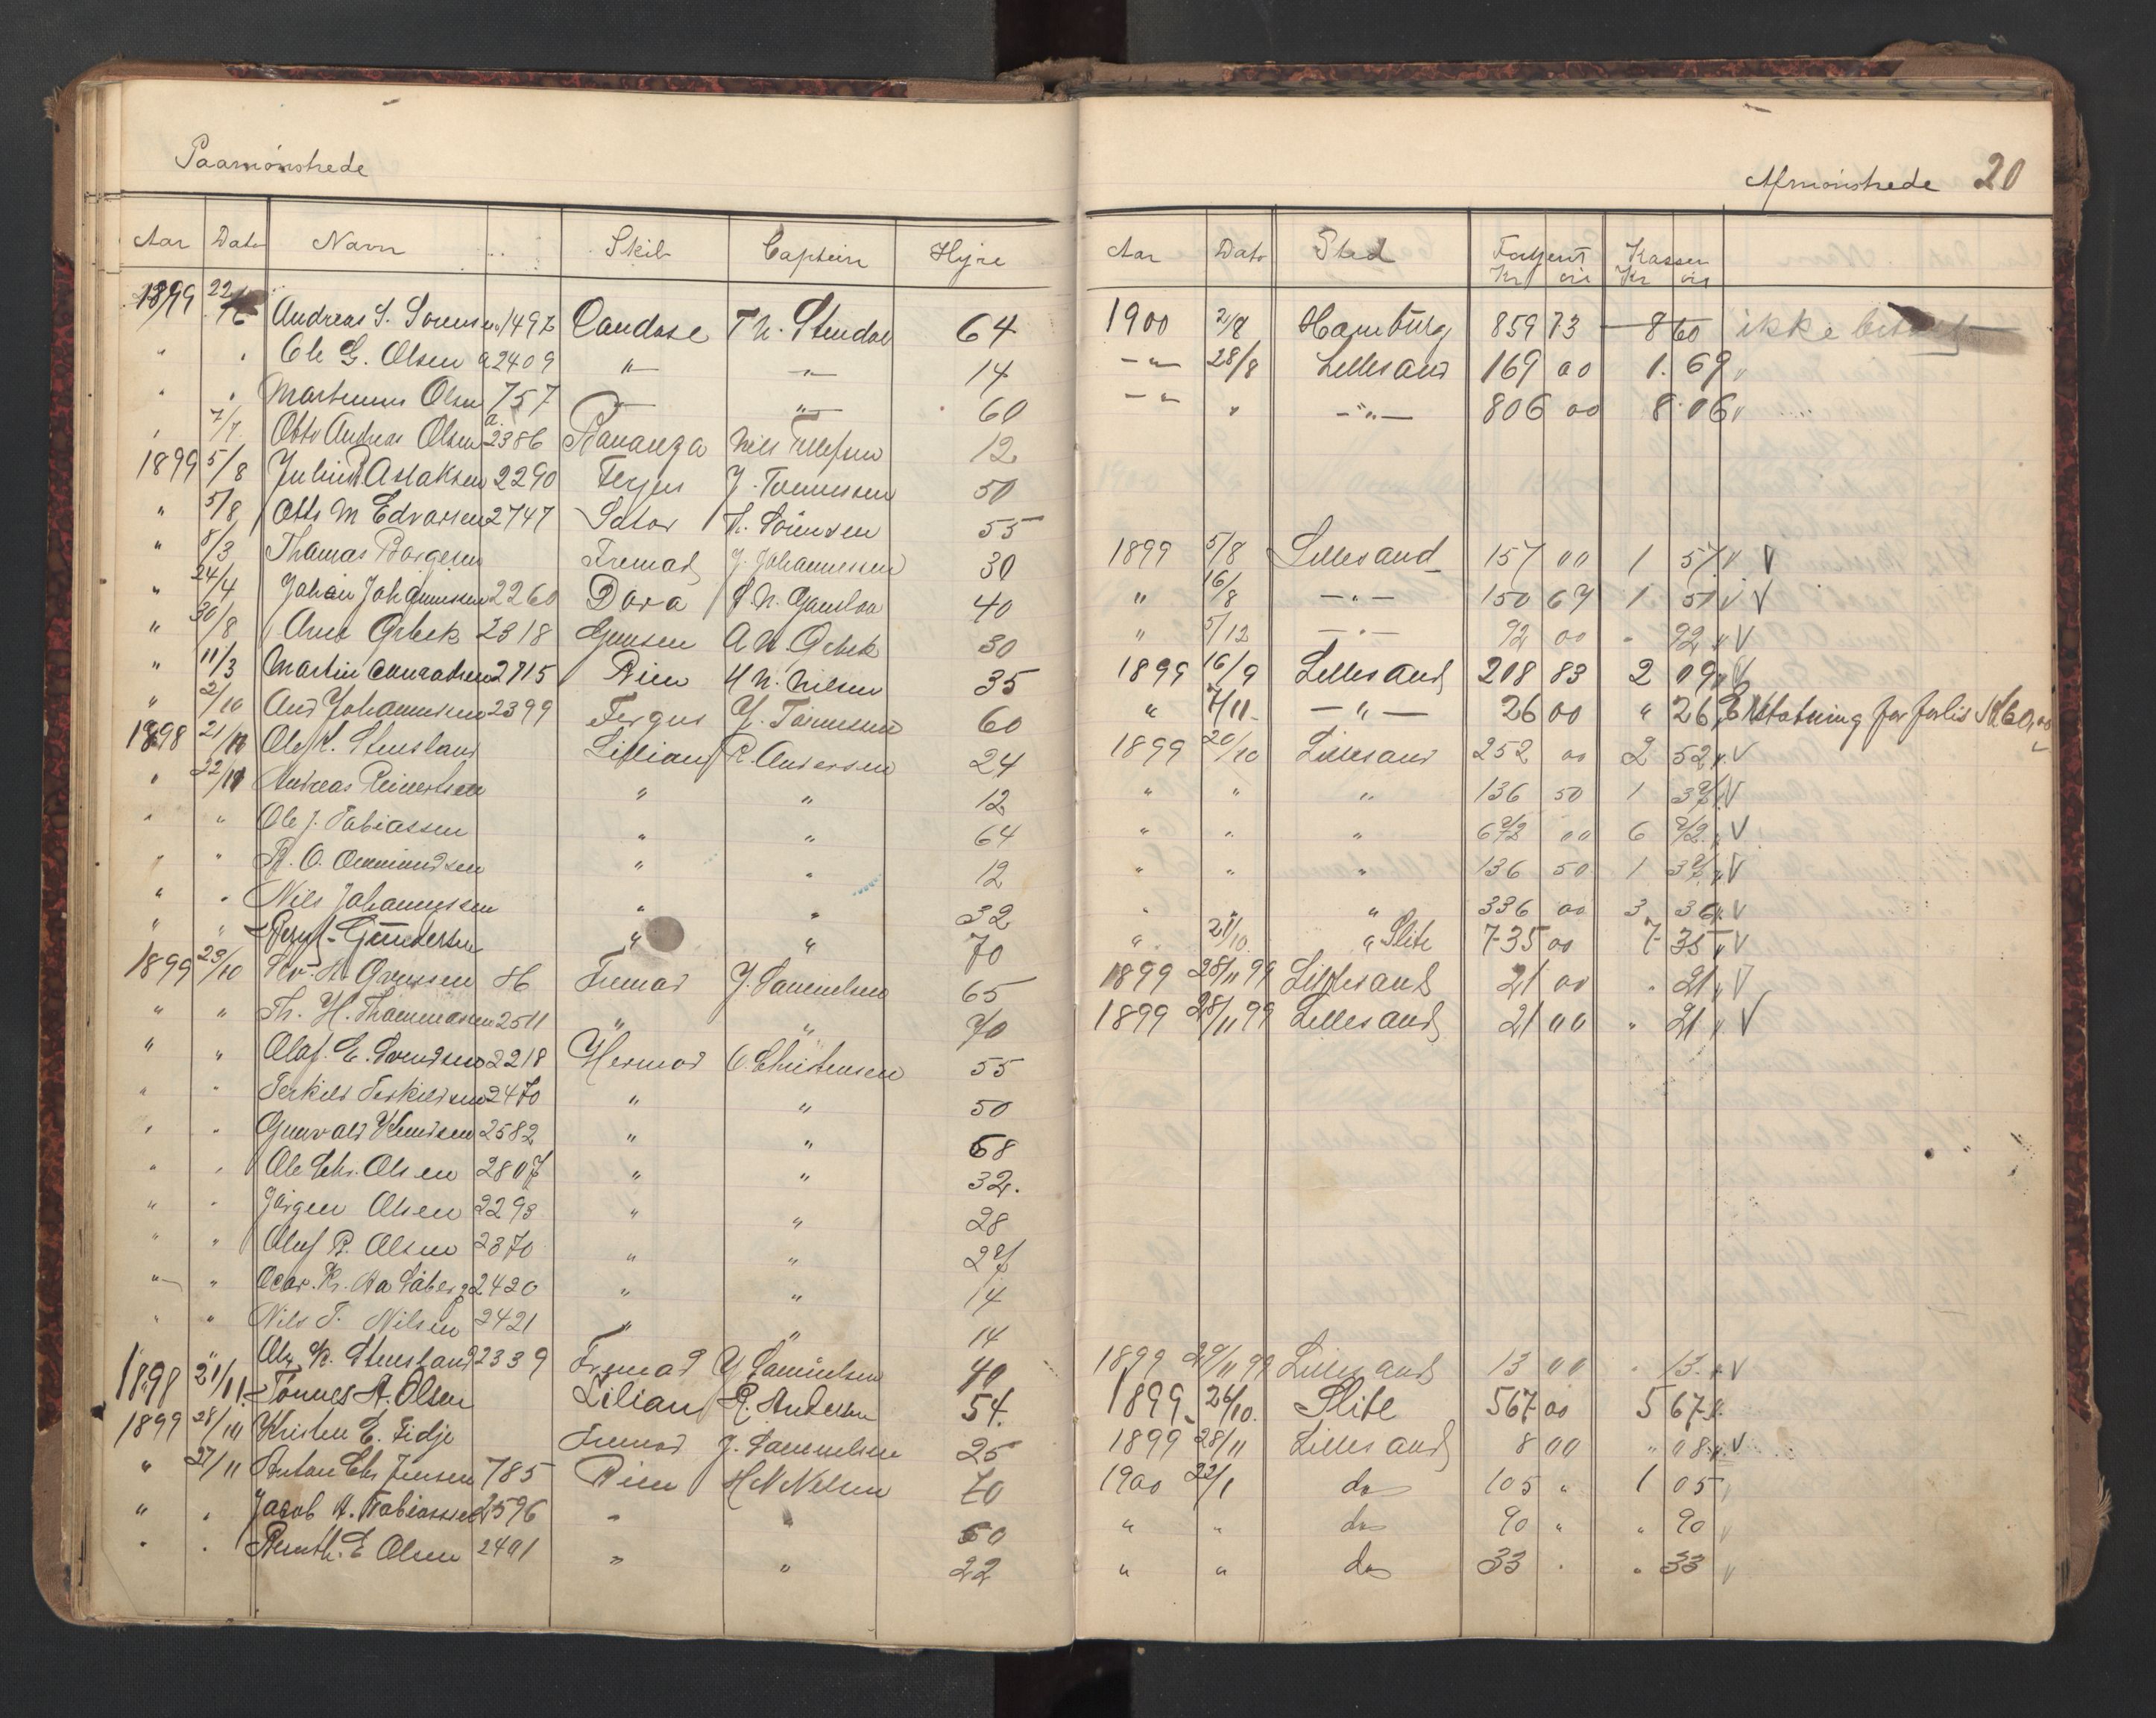 Paamönstrede
Aar Dato Navn Skib Captein Hyre
1899 22/6 Andreas S. Sörensen 1497 Candace Th. Stendal 64
" " Ole G. Olsen a2409 " " 14
" " Martinius Olsen 757 " " 60
" 7/7 Otto Andreas Olsen a2386 Bonanza Nils Ellefsen 12
1899 5/8 Julius Aslaksen 2290 Fergus J. Tönnessen 50
" 5/8 Otto M Edvarsen 2747 Sator H. Sörensen 55
" 8/3 Thomas Borgesen Fremad J. Johannessen 30
" 24/4 Johan Johannesen 2260 Dora 40
" 30/8 Arne Grbek 2318 Jensen A N. Grbek 30
" 11/3 Martin Conradsen 2715 Rien H N. Nilsen 35
" 2/10 And Johannesen 2399 Fergus J. Tönnesen 60
1898 21/11 Ole K. Stensland Lillian R. Andersen 24
" 22/11 Andreas Reinertsen " " 12
" " Ole J. Tobiassen " " 64
" " R. O. Ommundsen " " 12
" " Nils Johannessen " " 32
" " Bernt Gundersen " " 70
1899 23/10 H. Fremad J. Samuelsen 65
" " Th. H. Thommasen 2511 " " 70
" " Olaf. E. Svendsen 2218 Hermod O. Christensen 55
" " Terkild Terkildsen 2470 " " 50
" " Gunvald Knudsen 2582 " " 68
" " Ole Chr. Olsen 2807 " " 32.
" " Jörgen Olsen 2293 " " 28
" " Oluf R. Olsen 2370 " " 27
" " Oscar. Kr. Aa Saberg 2420 " " 14
" " Nils T. Nilsen 2421 " " 14
" Ole K. Stensland 2339 Fremad J Samuelsen 40
1898 21/11. Tönnes A. Olsen Lilian R. Andersen 54.
1899 28/10 Kristen E. Fidje Fremad J. Samuelsen 25
" 27/11 Anton Chr Jensen 785 Rien H N Nilsen 70
" " Jacob A. Tobiassen 2596 " " 60
" " Bernth. E Olsen 2401 " " 22
Afmönstrede 20
Aar Dato Sted Fortjent Kassen
Kr öre Kr öre
1900 2/8 Hamburg 859 73 8 60 ikke betalt
" 28/8 Lillesand 169 00 1. 69 "
" " " 806 00 8. 06 "
1899 5/8 Lillesand 157 00 1 57 " V
" 16/8 " 150 67 1 51 " V
" 5/12 " 92 00 " 92 " V
1899 16/9 Lillesand 208 83 2 09 " V
" 7/11 " 26 00 " 26 Erstatning for forlis Kr 60,00
1899 20/10 Lillesand 252 00 2 52 " V
" " " 136 50 1 37 " V
" " " 672 00 6 72 " V
" " " 136 50 1 37 " V
" " " 336 00 3 36 " V
" 21/10 " Slite 735 00 7 35 " V
1899 28/11 99 Lillesand 21 00 " 21 " V
1899 28/11 99 Lillesand 21 00 " 21 " V
1899 29/11 99 Lillesand 13 00 " 13 " V
1899 26/10. Slite 567 00 5 67
1899 28/11 Lillesand 8 00 " 08 " V
1900 22/1 do 105 " 1 05
" " do 90 " " 90 V
" " do 33 " " 33 V